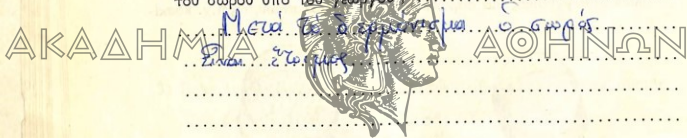 τοῦ σωροῦ ὑπὸ τοῦ γεωργοῦ
Μετά τό δερμόνισμα ὁ σωρός
Εἶναι ἕτοιμος
ΑΚΑΔΗΜΙΑ ΑΘΗΝΩΝ